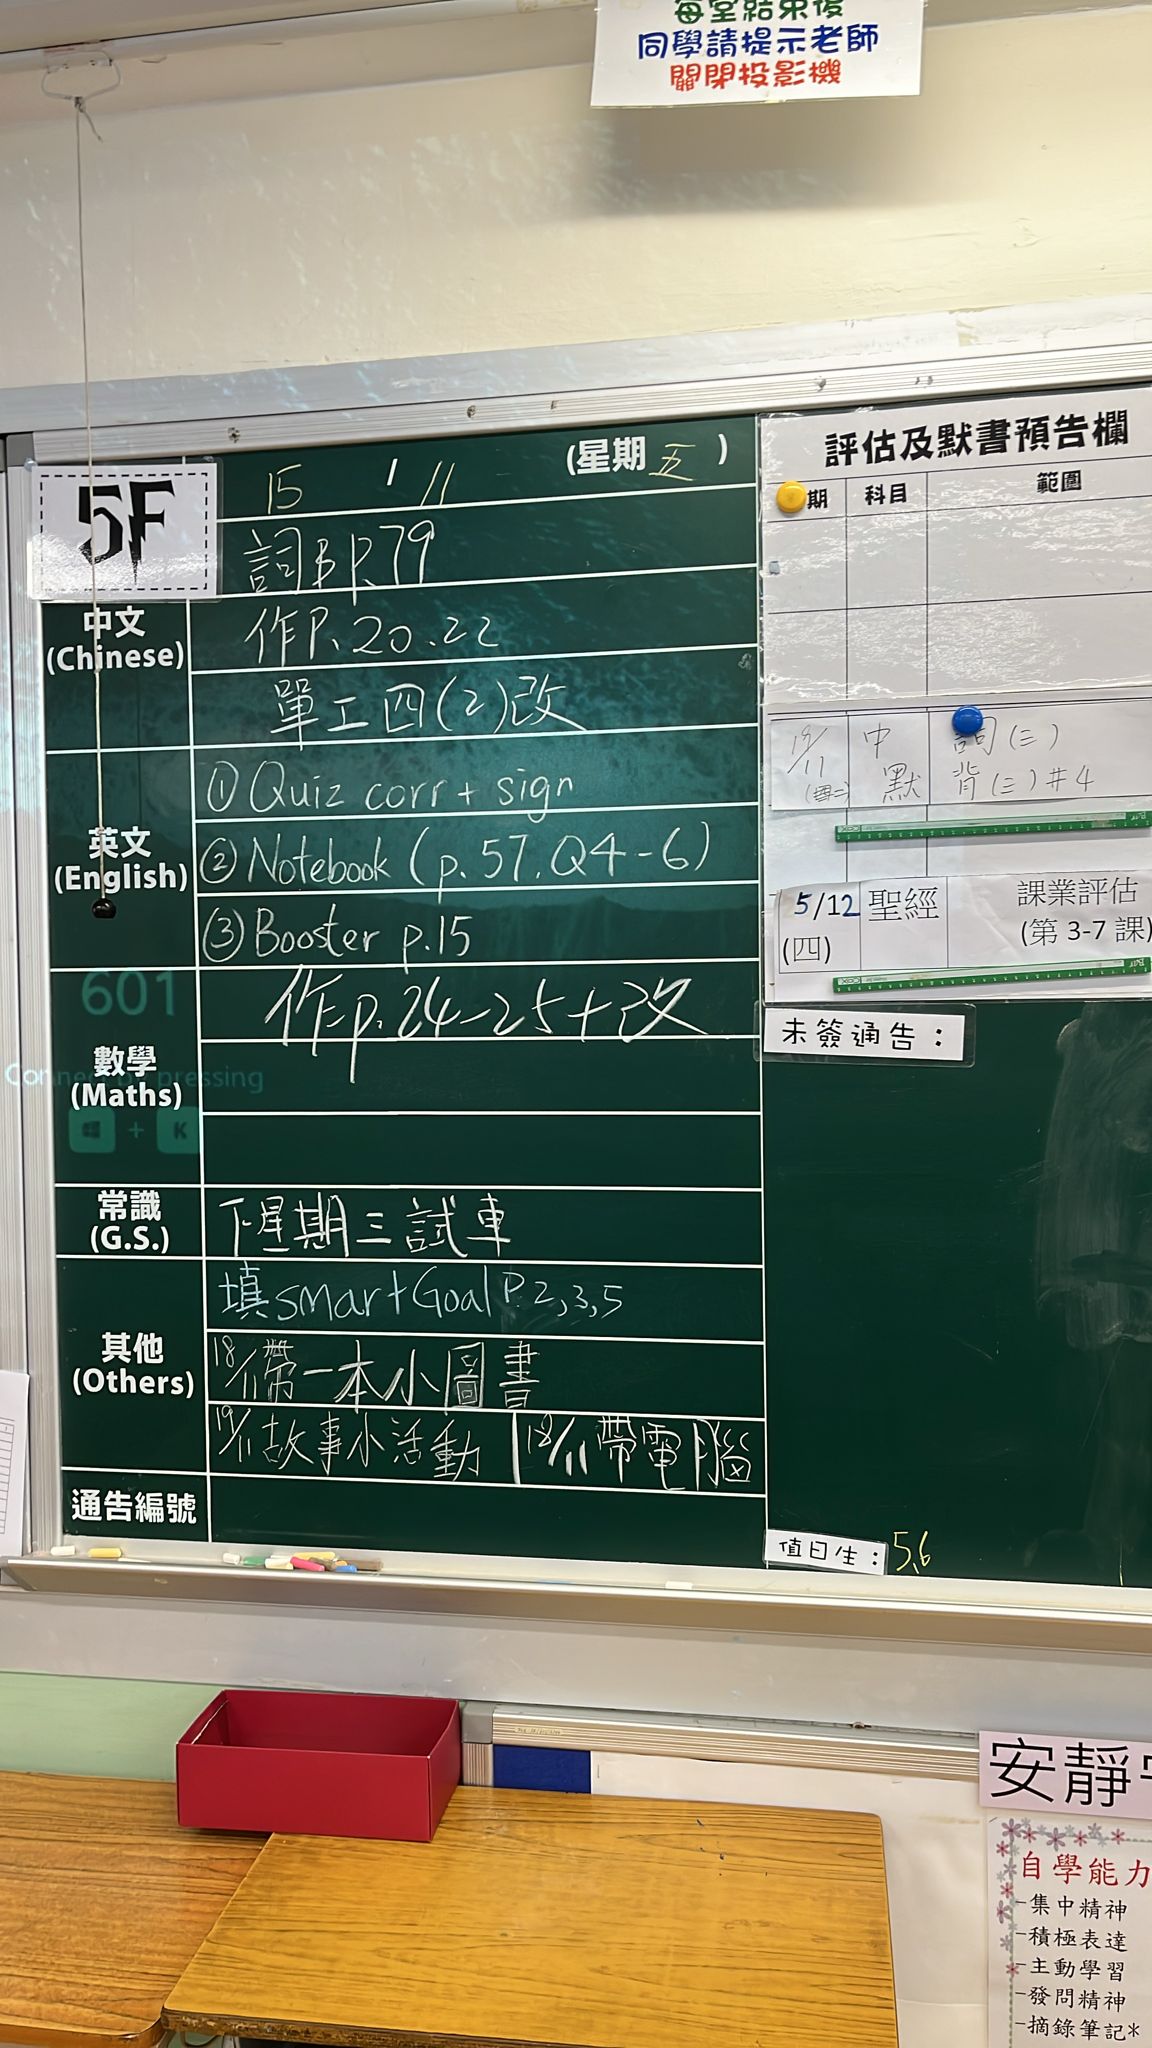 每堂結束後
同學請提示老師
關閉投影機
5F
15 / 11 (星期 五 )
中文
(Chinese)
詞B P.79
作P. 20.22
單工四(2)改
英文
(English)
① Quiz corr + sign
② Notebook (p.57. Q4-6)
③ Booster p.15
601
Connect by pressing
+ K
數學
(Maths)
作p.24-25+改
常識
(G.S.)
下星期三試車
其他
(Others)
填smart Goal P.2,3,5
18/11帶一本小圖書
19/11故事小活動 | 18/11帶電腦
通告編號
評估及默書預告欄
期 科目 範圍
19/11 中 詞(三)
默 背(三)#4
5/12 聖經 課業評估
(四) (第 3-7 課)
未簽通告：
值日生： 5,6
安靜
自學能力
-集中精神
-積極表達
-主動學習
-發問精神
-摘錄筆記*